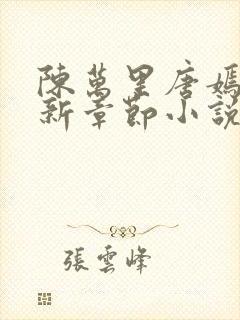 陳萬里唐嫣
新章節小說
張雲峰